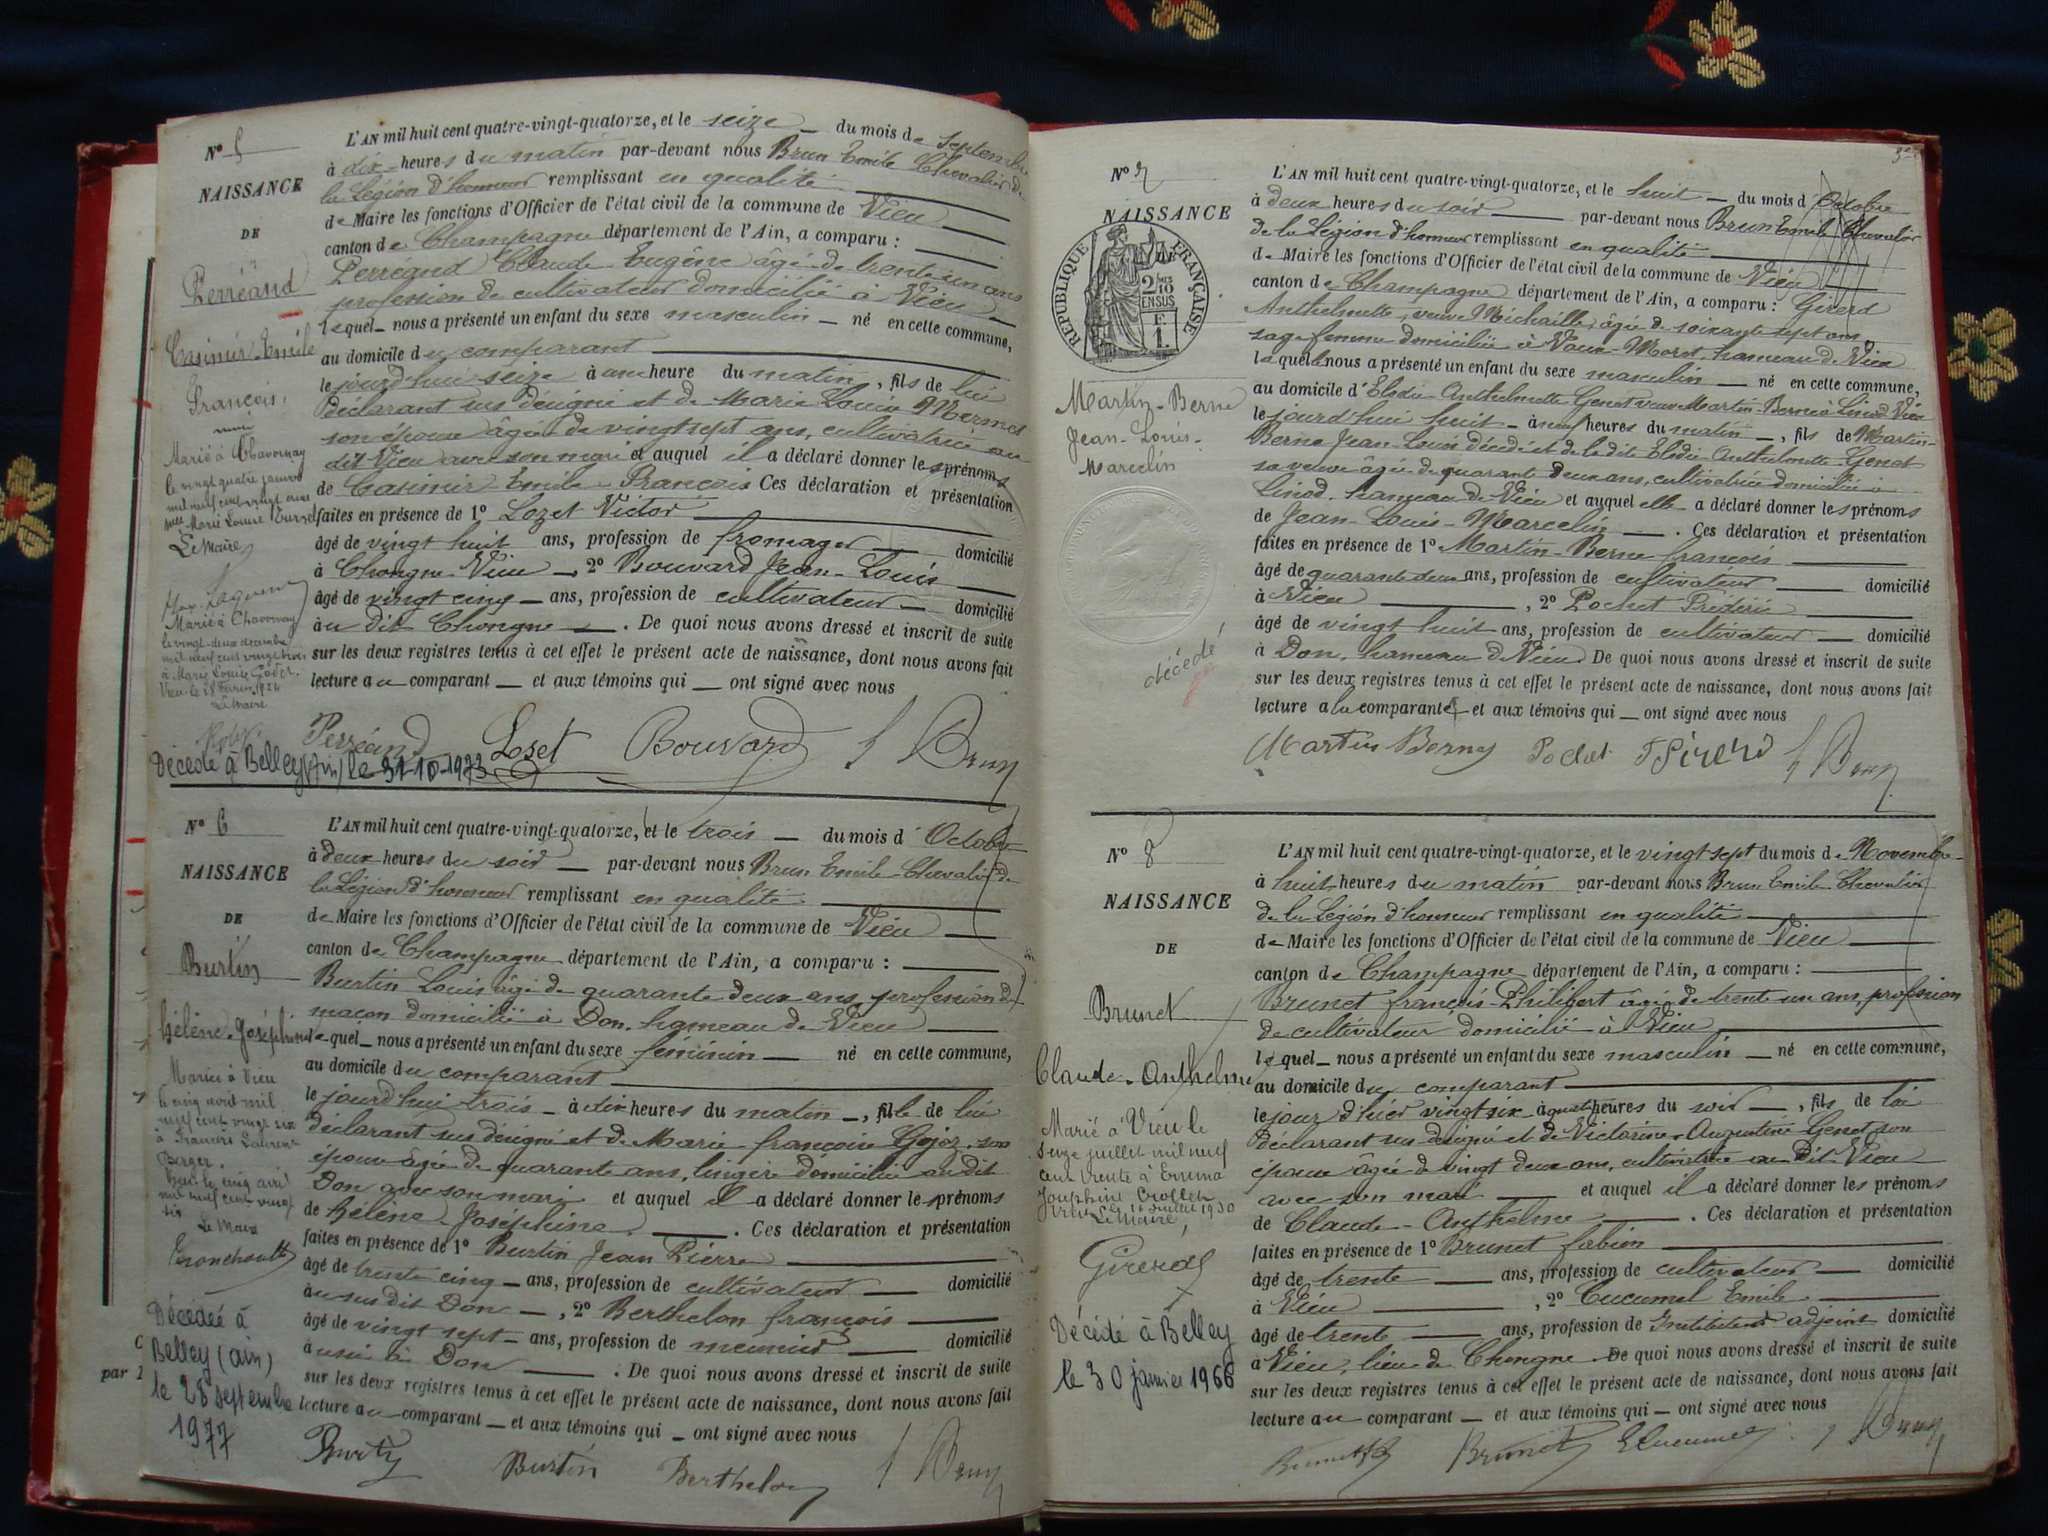 Nº 5
NAISSANCE
DE
Perréand
Casimir-Emile
François.
Marié à Chavornay
le vingt quatre janvier
mil neuf cent vingt
avec Marie Louise
Le Maire
Marié à Chavornay
le vingt-deux décembre
mil neuf cent vingt trois
à Marie Louise
Vieu le 28 Février 1924
Le Maire
Décédé à Belley (Ain) le 31-10-1973
L'AN mil huit cent quatre-vingt-quatorze, et le seize du mois de Septembre
à dix heures du matin par-devant nous Brun Emile Chevalier de
la Légion d'honneur remplissant en qualité
de Maire les fonctions d'Officier de l'état civil de la commune de Vieu
canton de Champagne département de l'Ain, a comparu :
Perréand Claude Eugène âgé de trente un ans
profession de cultivateur domicilié à Vieu
lequel nous a présenté un enfant du sexe masculin né en cette commune,
au domicile du comparant
le jourd'hui seize à une heure du matin, fils de lui
déclarant sus désigné et de Marie Louise Mermet
son épouse âgée de vingt sept ans, cultivatrice au
dit Vieu avec son mari et auquel il a déclaré donner les prénoms
de Casimir Emile François Ces déclaration et présentation
faites en présence de 1º Lozet Victor
âgé de vingt huit ans, profession de fromager domicilié
à Chongne Vieu, 2º Bouvard Jean-Louis
âgé de vingt cinq ans, profession de cultivateur domicilié
au dit Chongne. De quoi nous avons dressé et inscrit de suite
sur les deux registres tenus à cet effet le présent acte de naissance, dont nous avons fait
lecture au comparant et aux témoins qui ont signé avec nous
Perréand Lozet Bouvard Brun
Nº 6
NAISSANCE
DE
Burtin
Hélène-Joséphine
Mariée à Vieu
le cinq avril mil
neuf cent vingt six
à François Laurent
Berger.
Vieu le cinq avril
mil neuf cent vingt
six
Le Maire
Décédée à
Belley (ain)
le 28 septembre
1977
par
L'AN mil huit cent quatre-vingt-quatorze, et le trois du mois d'Octobre
à deux heures du soir par-devant nous Brun Emile Chevalier de
la Légion d'honneur remplissant en qualité
de Maire les fonctions d'Officier de l'état civil de la commune de Vieu
canton de Champagne département de l'Ain, a comparu :
Burtin Louis âgé de quarante deux ans, profession de
maçon domicilié à Don, hameau de Vieu
lequel nous a présenté un enfant du sexe féminin né en cette commune,
au domicile du comparant
le jourd'hui trois à dix heures du matin, fille de lui
déclarant sus désigné et de Marie françoise Gojoz son
épouse âgée de quarante ans, lingère domiciliée au dit
Don avec son mari et auquel il a déclaré donner les prénoms
de Hélène Joséphine. Ces déclaration et présentation
faites en présence de 1º Burtin Jean Pierre
âgé de trente cinq ans, profession de cultivateur domicilié
au sus dit Don, 2º Berthelon françois
âgé de vingt sept ans, profession de meunier domicilié
aussi à Don. De quoi nous avons dressé et inscrit de suite
sur les deux registres tenus à cet effet le présent acte de naissance, dont nous avons fait
lecture au comparant et aux témoins qui ont signé avec nous
Burtin Berthelon Brun
Nº 7
NAISSANCE
RÉPUBLIQUE FRANÇAISE
2/10 EN SUS
F.
1.
Martin-Berne
Jean-Louis-
Marcelin
décédé
L'AN mil huit cent quatre-vingt-quatorze, et le huit du mois d'Octobre
à deux heures du soir par-devant nous Brun Emile Chevalier
de la Légion d'honneur remplissant en qualité
de Maire les fonctions d'Officier de l'état civil de la commune de Vieu
canton de Champagne département de l'Ain, a comparu : Girerd
Anthelmette, veuve Michaille, âgée de soixante sept ans
sage femme domiciliée à Vaux-Moret, hameau de Vieu
laquelle nous a présenté un enfant du sexe masculin né en cette commune,
au domicile d'Elodie Anthelmette Genet veuve Martin-Berne à Linod Vieu
le jourd'hui huit à neuf heures du matin, fils de Martin-
Berne Jean-Louis décédé et de la dite Elodie Anthelmette Genet
sa veuve âgée de quarante deux ans, cultivatrice domiciliée à
Linod, hameau de Vieu et auquel elle a déclaré donner les prénoms
de Jean-Louis-Marcelin. Ces déclaration et présentation
faites en présence de 1º Martin-Berne françois
âgé de quarante deux ans, profession de cultivateur domicilié
à Vieu, 2º Pochet Frédéric
âgé de vingt huit ans, profession de cultivateur domicilié
à Don, hameau de Vieu. De quoi nous avons dressé et inscrit de suite
sur les deux registres tenus à cet effet le présent acte de naissance, dont nous avons fait
lecture a la comparante et aux témoins qui ont signé avec nous
Martin Berne Pochet F Girerd Brun
Nº 8
NAISSANCE
DE
Brunet
Claude-Anthelme
Marié à Vieu le
seize juillet mil neuf
cent trente à Emma
Joséphine
Vieu le 16 Juillet 1930
Le Maire,
Girerd
Décédé à Belley
le 30 janvier 1966
L'AN mil huit cent quatre-vingt-quatorze, et le vingt sept du mois de Novembre
à huit heures du matin par-devant nous Brun Emile Chevalier
de la Légion d'honneur remplissant en qualité
de Maire les fonctions d'Officier de l'état civil de la commune de Vieu
canton de Champagne département de l'Ain, a comparu :
Brunet françois-Philibert âgé de trente un ans, profession
de cultivateur domicilié à Vieu
lequel nous a présenté un enfant du sexe masculin né en cette commune,
au domicile du comparant
le jour d'hier vingt six à quatre heures du soir, fils de lui
déclarant sus désigné et de Victorine-Augustine Genet son
épouse âgée de vingt deux ans, cultivatrice au dit Vieu
avec son mari et auquel il a déclaré donner les prénoms
de Claude-Anthelme. Ces déclaration et présentation
faites en présence de 1º Brunet fabien
âgé de trente ans, profession de cultivateur domicilié
à Vieu, 2º Cucumel Emile
âgé de trente ans, profession de Instituteur adjoint domicilié
à Vieu, lieu de Chongne. De quoi nous avons dressé et inscrit de suite
sur les deux registres tenus à cet effet le présent acte de naissance, dont nous avons fait
lecture au comparant et aux témoins qui ont signé avec nous
Brunet Brunet E Cucumel Brun